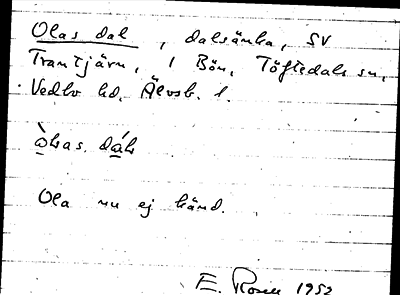 Olas dal, dalsänka, SV
Trantjärn, 1 Bön, Töftedals sn,
Vedbo hd, Älvsb. l.
Ola nu ej känd.
E. Rosell 1952